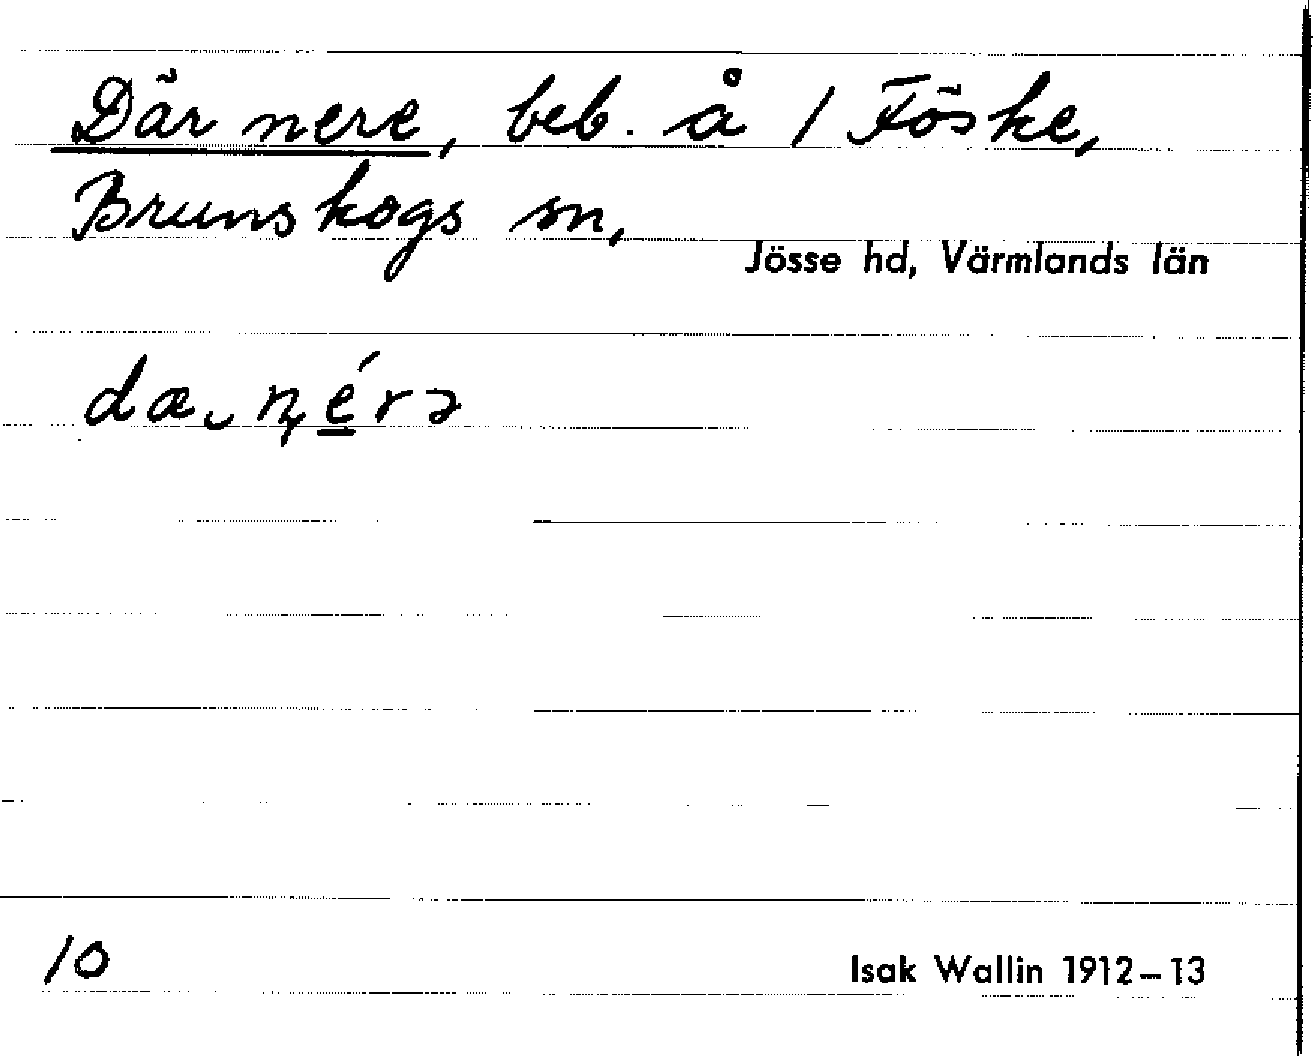 Där nere, beb. å 1 Föske,
Brunskogs sn,
Jösse hd, Värmlands län
dæ‿ɳérə
10
Isak Wallin 1912–13